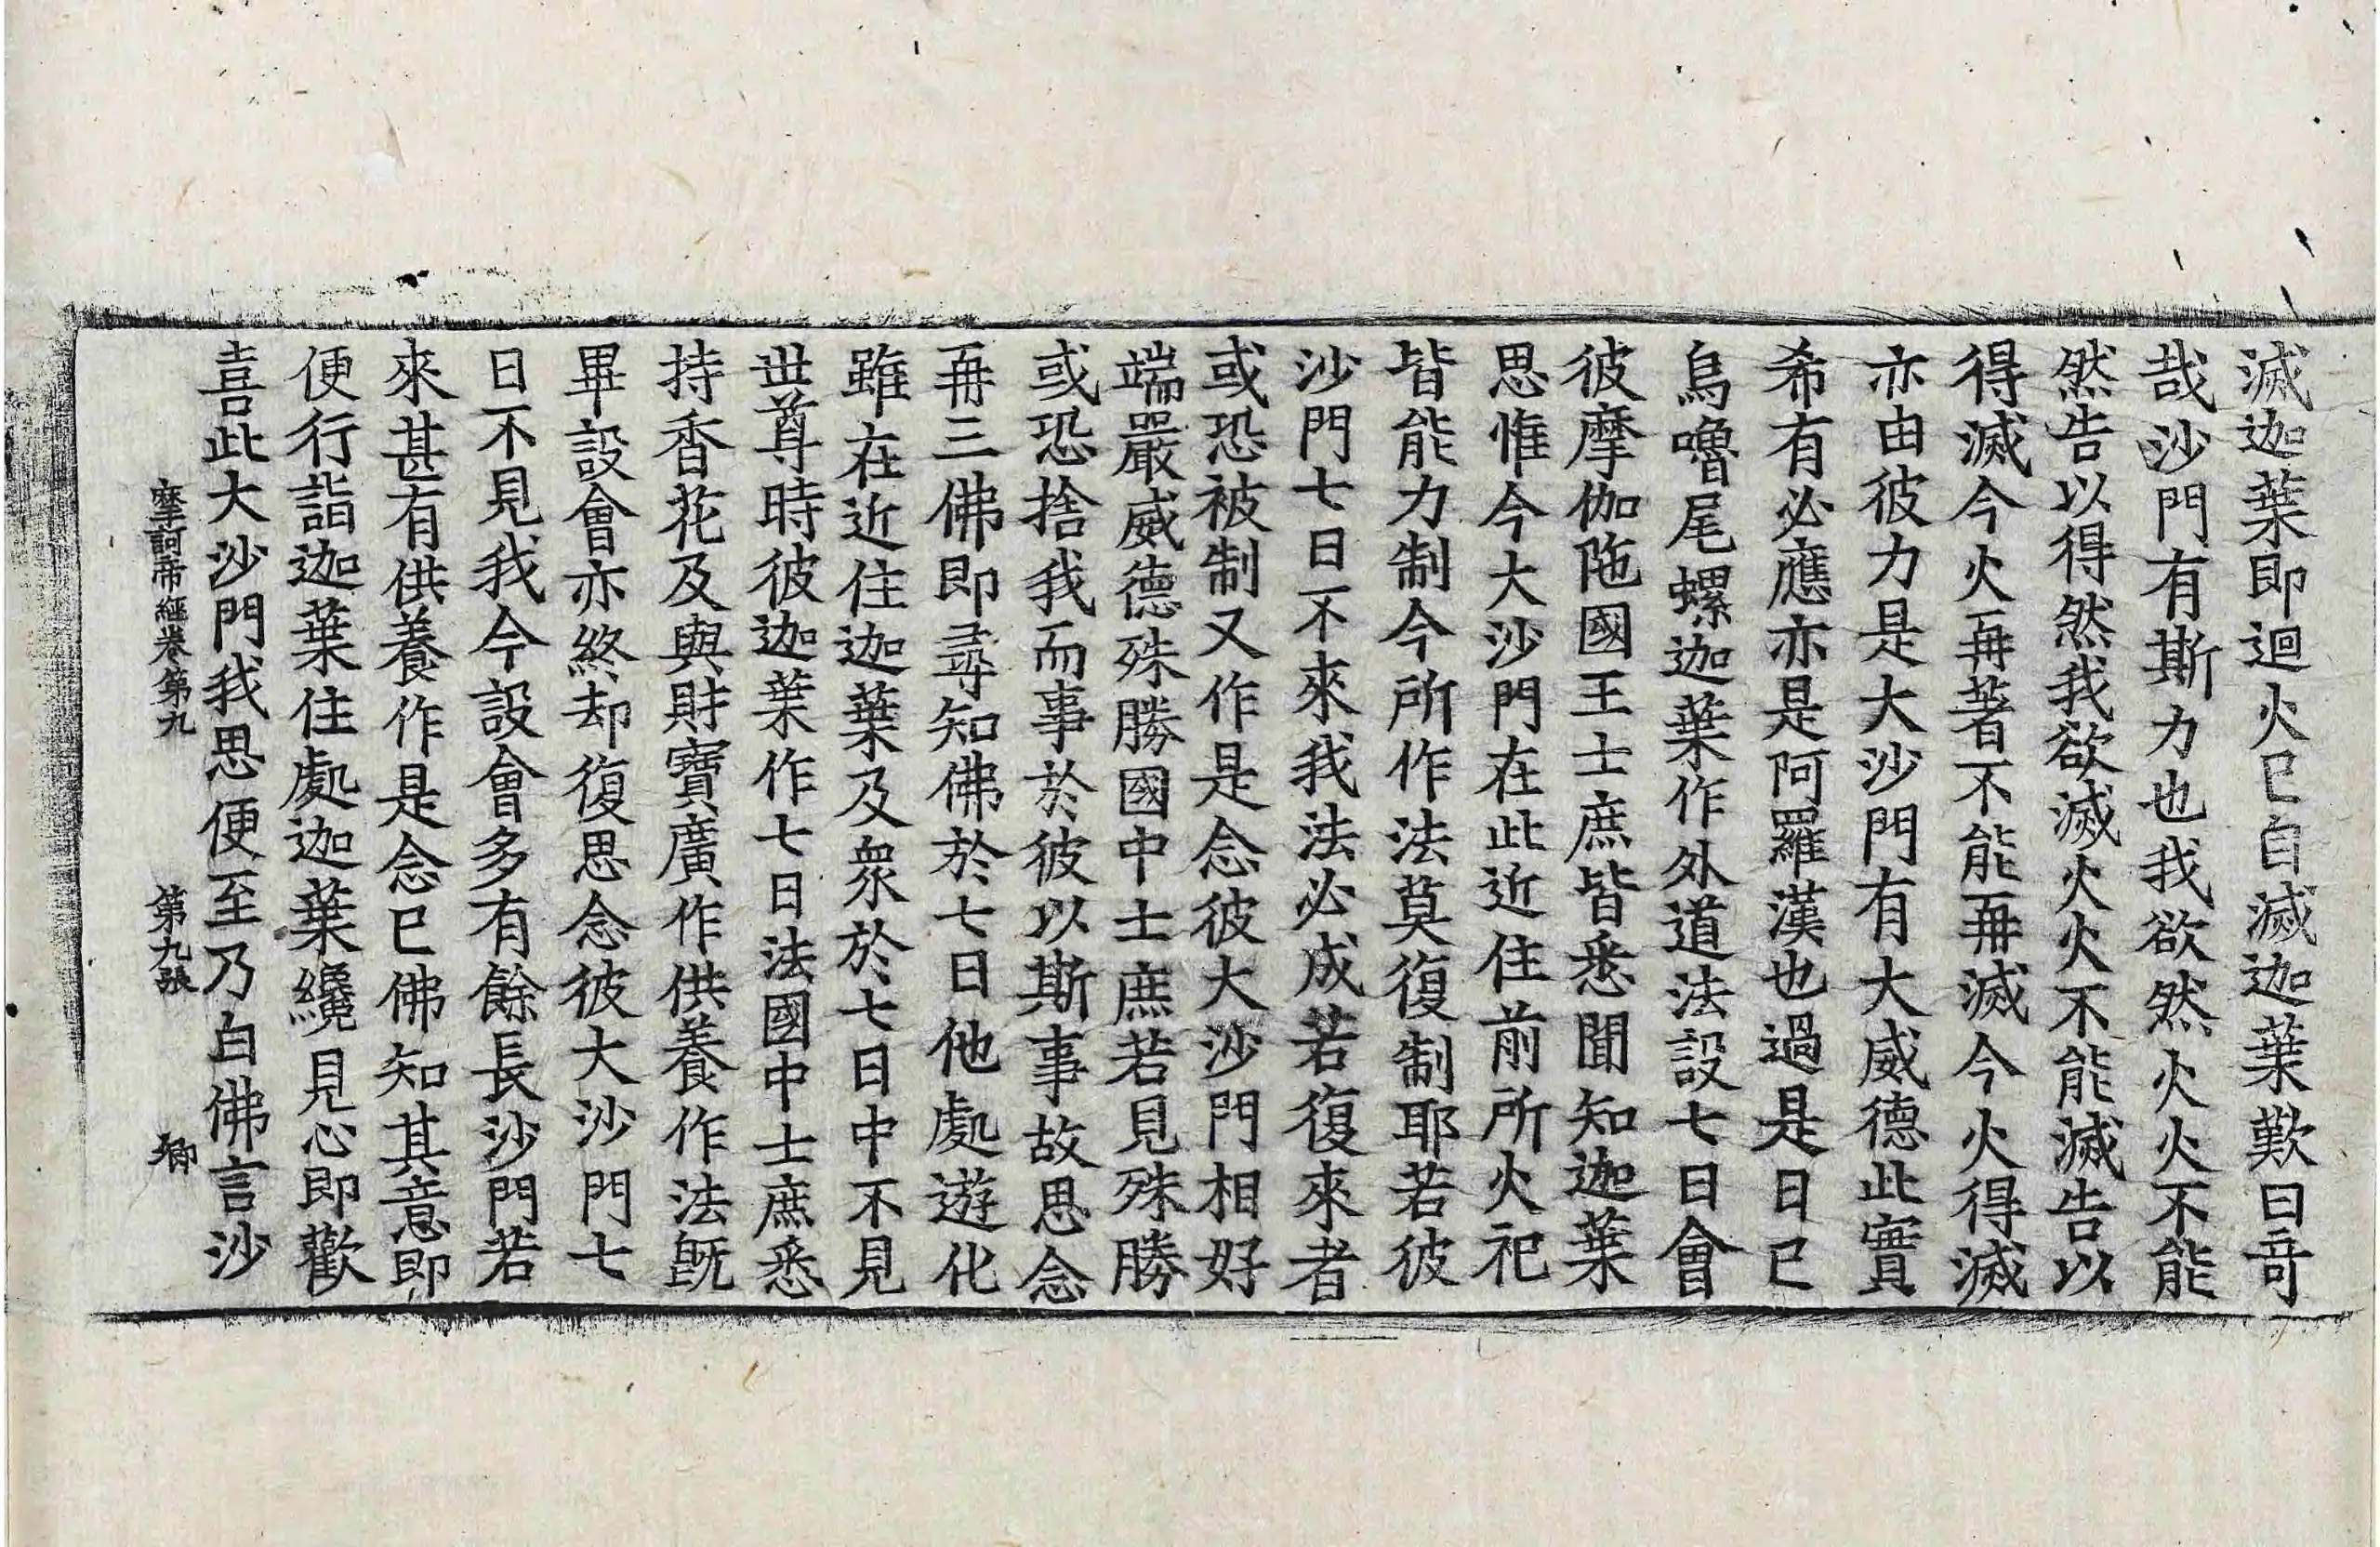 滅迦葉即迴火已自滅迦葉歎曰奇
哉沙門有斯力也我欲然火火不能
然告以得然我欲滅火火不能滅告以
得滅今火再著不能再滅今火得滅
亦由彼力是大沙門有大威德此實
希有必應亦是阿羅漢也過是日已
烏嚕尾螺迦葉作外道法設七日會
彼摩伽陁國王士庶皆悉聞知迦葉
思惟今大沙門在此近住前所火祀
皆能力制今所作法莫復制耶若彼
沙門七日不來我法必成若復來者
或恐被制又作是念彼大沙門相好
端嚴威德殊勝國中士庶若見殊勝
或恐捨我而事於彼以斯事故思念
再三佛即尋知佛於七日他處遊化
雖在近住迦葉及衆於七日中不見
世尊時彼迦葉作七日法國中士庶悉
持香花及與財寶廣作供養作法既
畢設會亦終却復思念彼大沙門七
日不見我今設會多有餘長沙門若
來甚有供養作是念已佛知其意即
便行詣迦葉住處迦葉纔見心即歡
喜此大沙門我思便至乃白佛言沙
摩訶帝經卷第九 第九張 卿